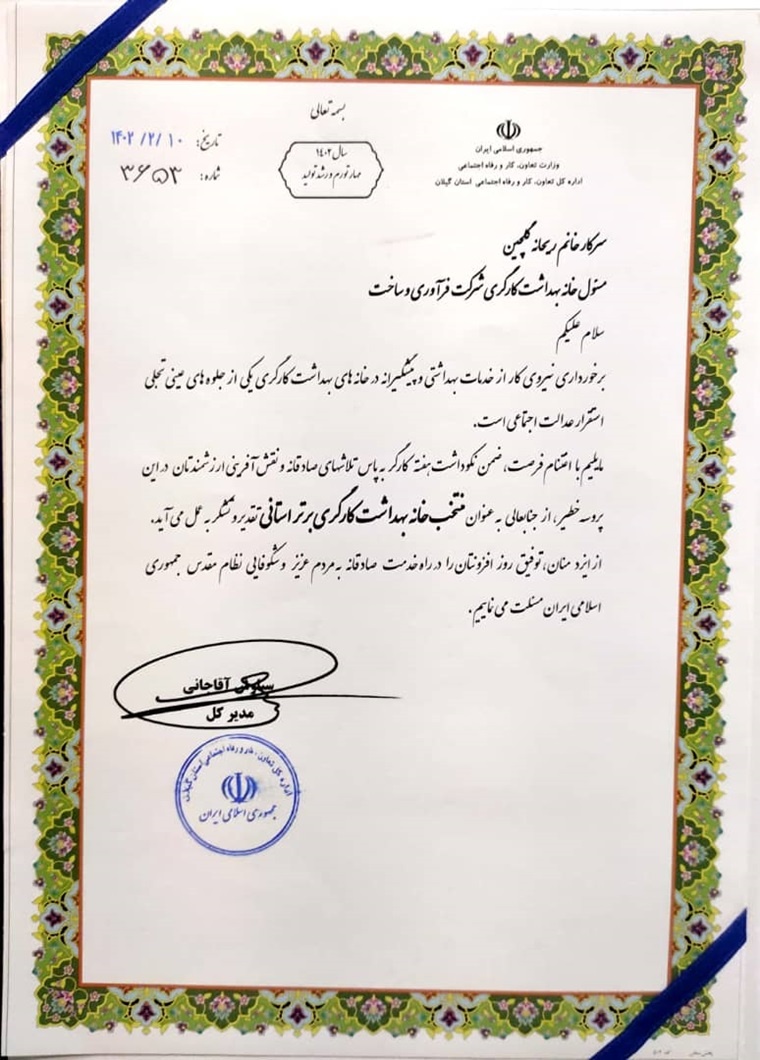 بسمه تعالی
جمهوری اسلامی ایران
وزارت تعاون، کار و رفاه اجتماعی
اداره کل تعاون، کار و رفاه اجتماعی استان گیلان
سال ۱۴۰۲
مهار تورم و رشد تولید
تاریخ: ۱۴۰۲/۲/۱۰
شماره: ۳۶۵۳
سرکار خانم ریحانه گلچین
مسئول خانه بهداشت کارگری شرکت فرآوری و ساخت
سلام علیکم
برخورداری نیروی کار از خدمات بهداشتی و پیشگیرانه در خانه های بهداشت کارگری یکی از جلوه های عینی تجلی
استقرار عدالت اجتماعی است.
مایلیم با اغتنام فرصت، ضمن نکوداشت هفته کارگر به پاس تلاشهای صادقانه و نقش آفرینی ارزشمندتان در این
پروسه خطیر، از جنابعالی به عنوان منتخب خانه بهداشت کارگری برتر استانی تقدیر و تشکر به عمل می آید.
از ایزد منان، توفیق روز افزونتان را در راه خدمت صادقانه به مردم عزیز و شکوفایی نظام مقدس جمهوری
اسلامی ایران مسئلت می نماییم.
آقاجانی
مدیر کل
اداره کل تعاون، کار و رفاه اجتماعی استان گیلان
جمهوری اسلامی ایران